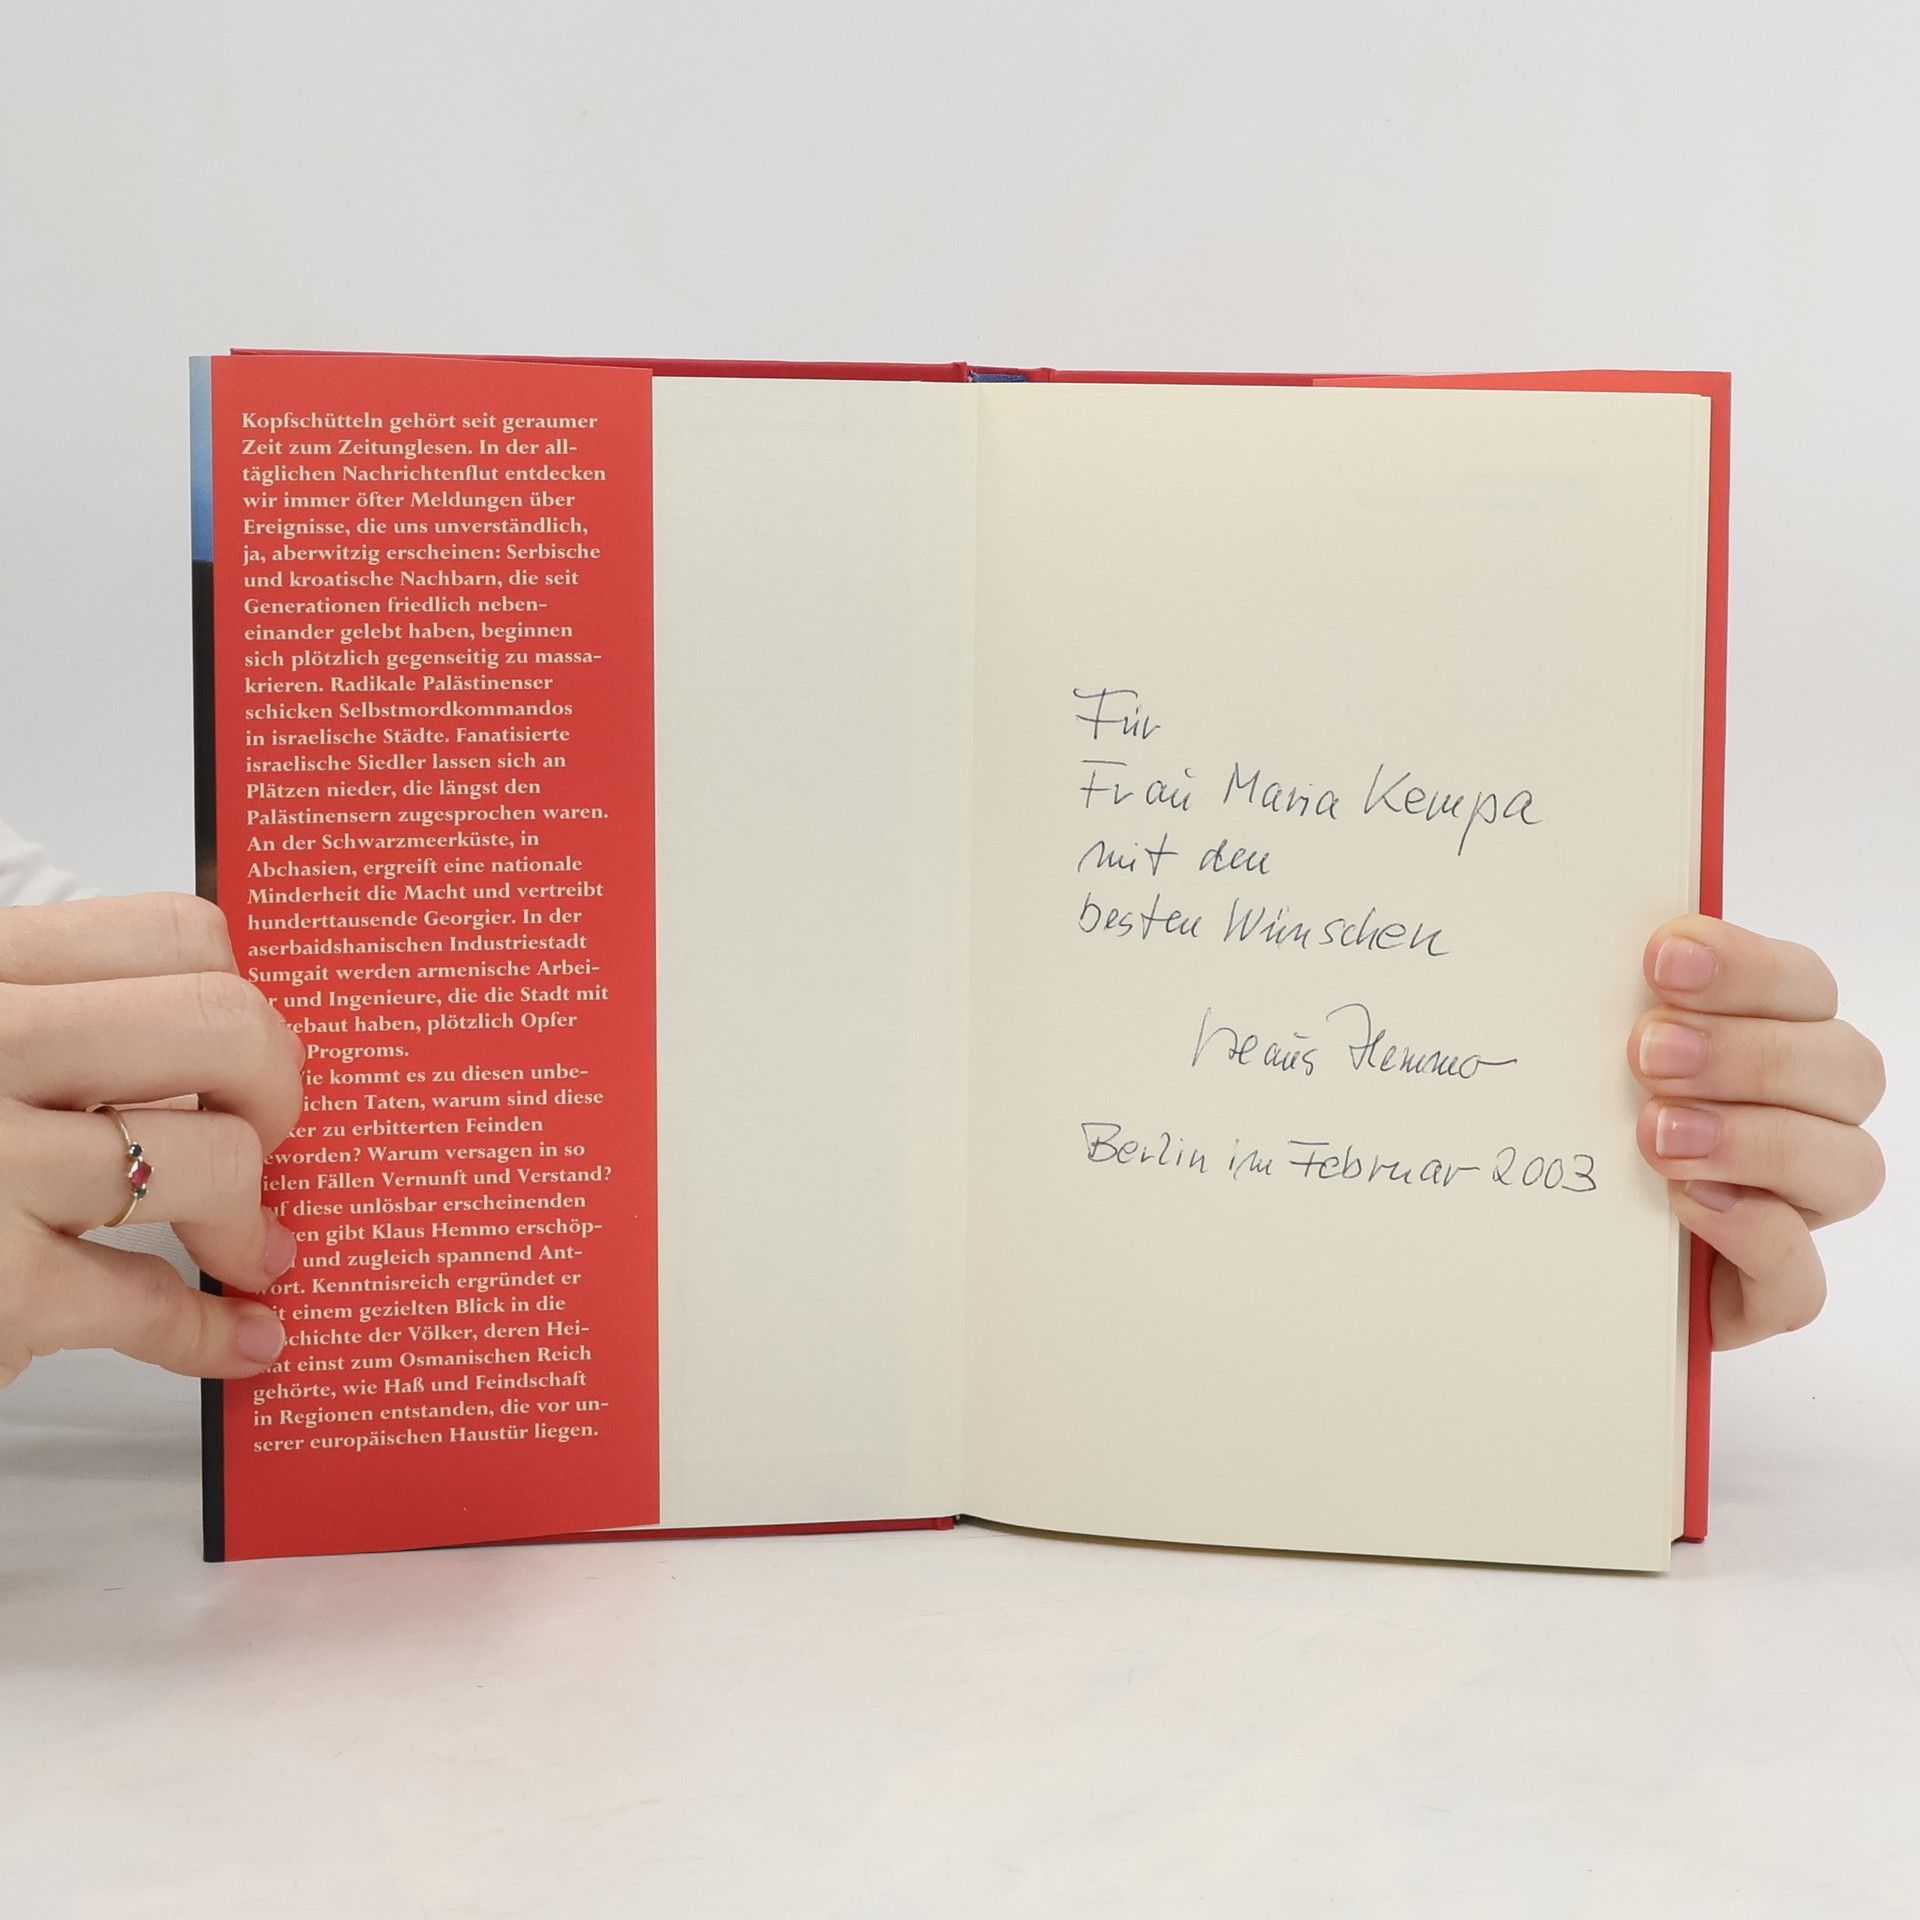 Kopfschütteln gehört seit geraumer
Zeit zum Zeitunglesen. In der all-
täglichen Nachrichtenflut entdecken
wir immer öfter Meldungen über
Ereignisse, die uns unverständlich,
ja, aberwitzig erscheinen: Serbische
und kroatische Nachbarn, die seit
Generationen friedlich neben-
einander gelebt haben, beginnen
sich plötzlich gegenseitig zu massa-
krieren. Radikale Palästinenser
schicken Selbstmordkommandos
in israelische Städte. Fanatisierte
israelische Siedler lassen sich an
Plätzen nieder, die längst den
Palästinensern zugesprochen waren.
An der Schwarzmeerküste, in
Abchasien, ergreift eine nationale
Minderheit die Macht und vertreibt
hunderttausende Georgier. In der
aserbaidshanischen Industriestadt
Sumgait werden armenische Arbei-
und Ingenieure, die die Stadt mit
haben, plötzlich Opfer
Progroms.
kommt es zu diesen unbe-
Taten, warum sind diese
zu erbitterten Feinden
Warum versagen in so
Fällen Vernunft und Verstand?
diese unlösbar erscheinenden
gibt Klaus Hemmo erschöp-
und zugleich spannend Ant-
wort. Kenntnisreich ergründet er
einem gezielten Blick in die
der Völker, deren Hei-
einst zum Osmanischen Reich
gehörte, wie Haß und Feindschaft
in Regionen entstanden, die vor un-
serer europäischen Haustür liegen.
Für
Frau Maria Kempa
mit den
besten Wünschen
Klaus Hemmo
Berlin im Februar 2003